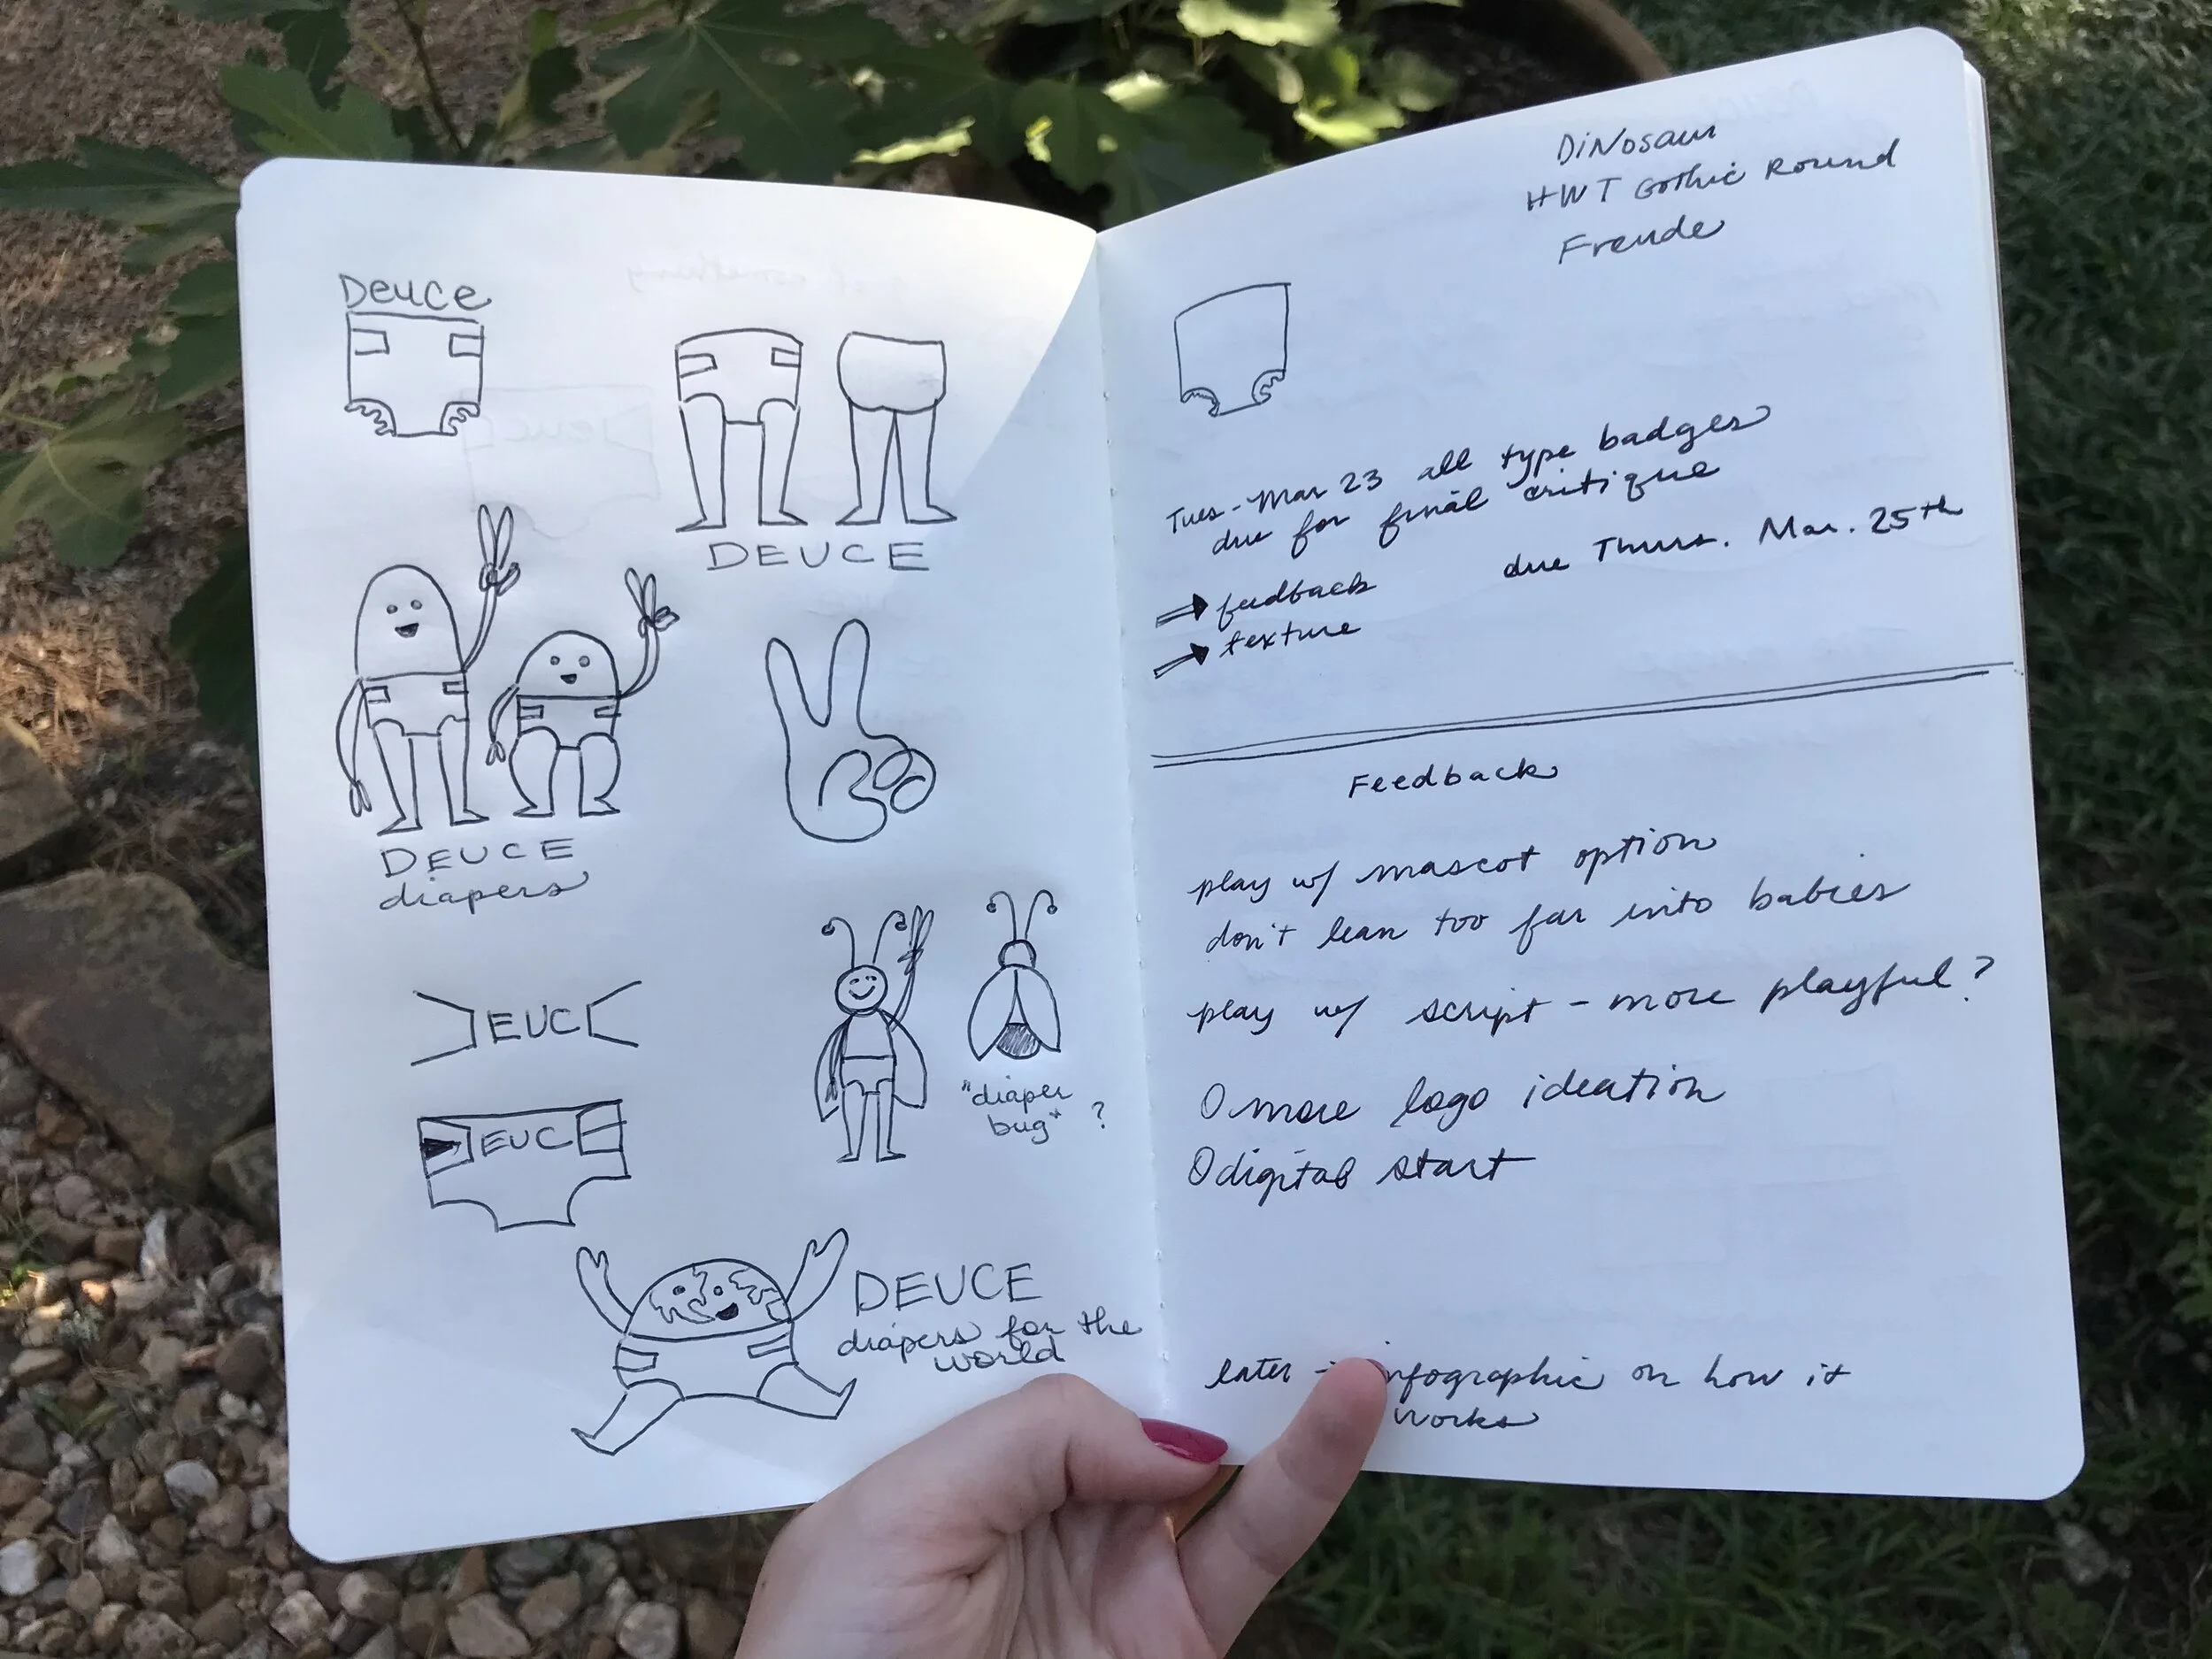 Deuce
DEUCE
DEUCE
diapers
EUC
EUC
"diaper
bug" ?
DEUCE
diapers for the
world
DiNosaur
HWT Gothic Round
Freude
Tues - Mar 23 all type badges
due for final critique
due Thurs. Mar. 25th
feedback
texture
Feedback
play w/ mascot option
don't lean too far into babies
play w/ script - more playful?
more logo ideation
digital start
later - infographic on how it
works